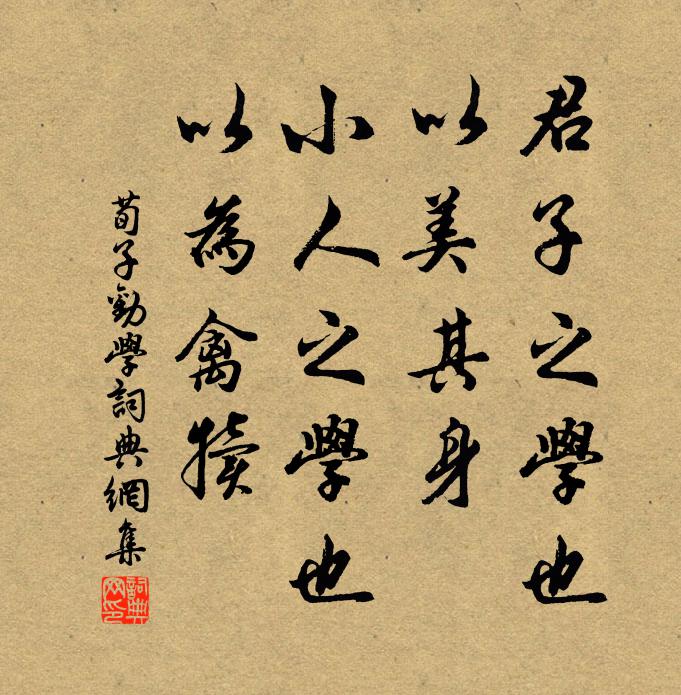 君子之學也
以美其身
小人之學也
以為禽犢
荀子勸學詞典網集
詞典網印